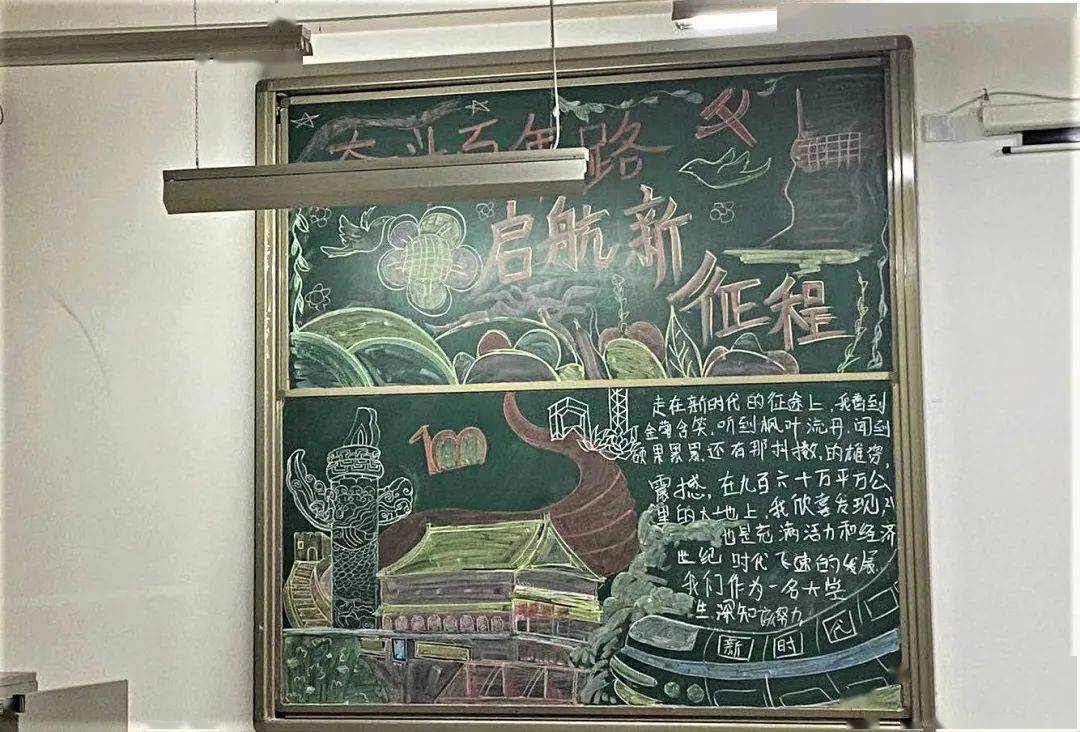 奋斗百年路
启航新
征程
100
走在新时代的征途上，我看到
金菊含笑，听到枫叶流丹，闻到
硕果累累，还有那抖擞的雄姿，
震撼，在九百六十万平方公
里的大地上，我欣喜发现，
也是充满活力和经济
世纪时代飞速的发展，
我们作为一名大学
生深知 努力
新时代